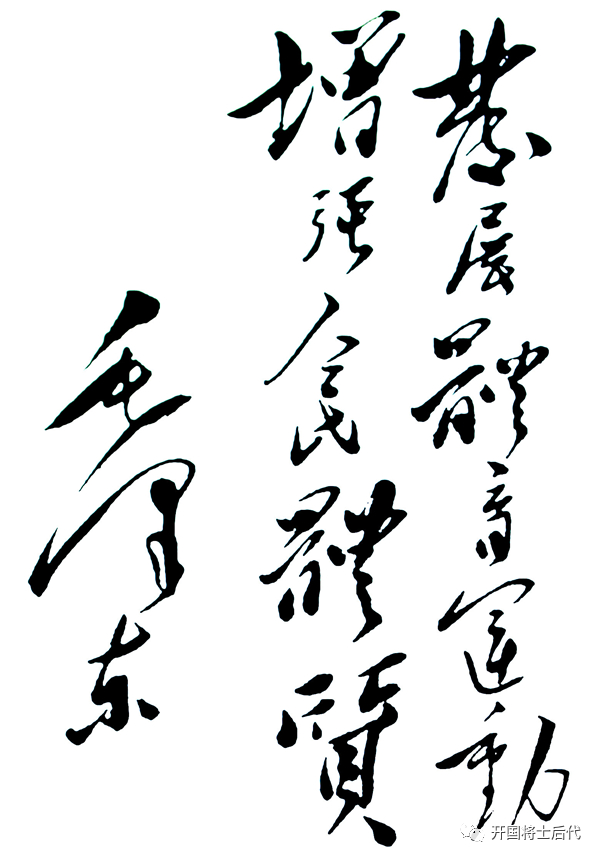 發展體育運動
增强人民體質
毛泽东
开国将士后代